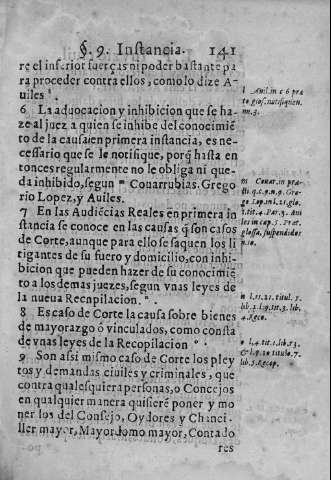 §. 9. Instancia. 141
re el inferior fuerças ni poder bastante pa
ra proceder contra ellos, como lo dize A-
uiles ˡ.
6 La aduocacion y inhibicion que se ha-
ze al juez a quien se inhibe del conocimiẽ
to de la causa en primera instancia, es ne-
cessario que se le notifique, porq̃ hasta en
tonces regularmente no le obliga ni que
da inhibido, segun ᵐ Couarrubias. Grego
rio Lopez, y Auiles.
7 En las Audiẽcias Reales en primera in
stancia se conoce en las causas q̃ son casos
de Corte, aunque para ello se saquen los li
tigantes de su fuero y domicilio, con inhi-
bicion que pueden hazer de su conocimiẽ
to a los demas juezes, segun vnas leyes de
la nueua Recopilacion ⁿ.
8 Es caso de Corte la causa sobre bienes
de mayorazgo ò vinculados, como consta
de vnas leyes de la Recopilacion ᵒ.
9 Son assi mismo caso de Corte los pley
tos y demandas ciuiles y criminales, que
contra qualesquiera personas, o Concejos
en qualquier manera quisierẽ poner y mo
uer los del Consejo, Oydores y Chanci-
ller mayor, Mayordomo mayor, Contado
res
l Auil. in c 6 præ
to glos. notifiquen.
nn.3.
m Couar. in pra-
cti. q.c.9.n.9. Gre-
go
tit.4. Par.3. Aui
les in cap.5. Præt.
glossa, suspendidos
n.10.
n l.11.21. titul.5.
lib.3. l.
4. Reco.
o l.9.tit.1.lib.3.
& l.9.10 titulo.7.
lib.5. Recop.